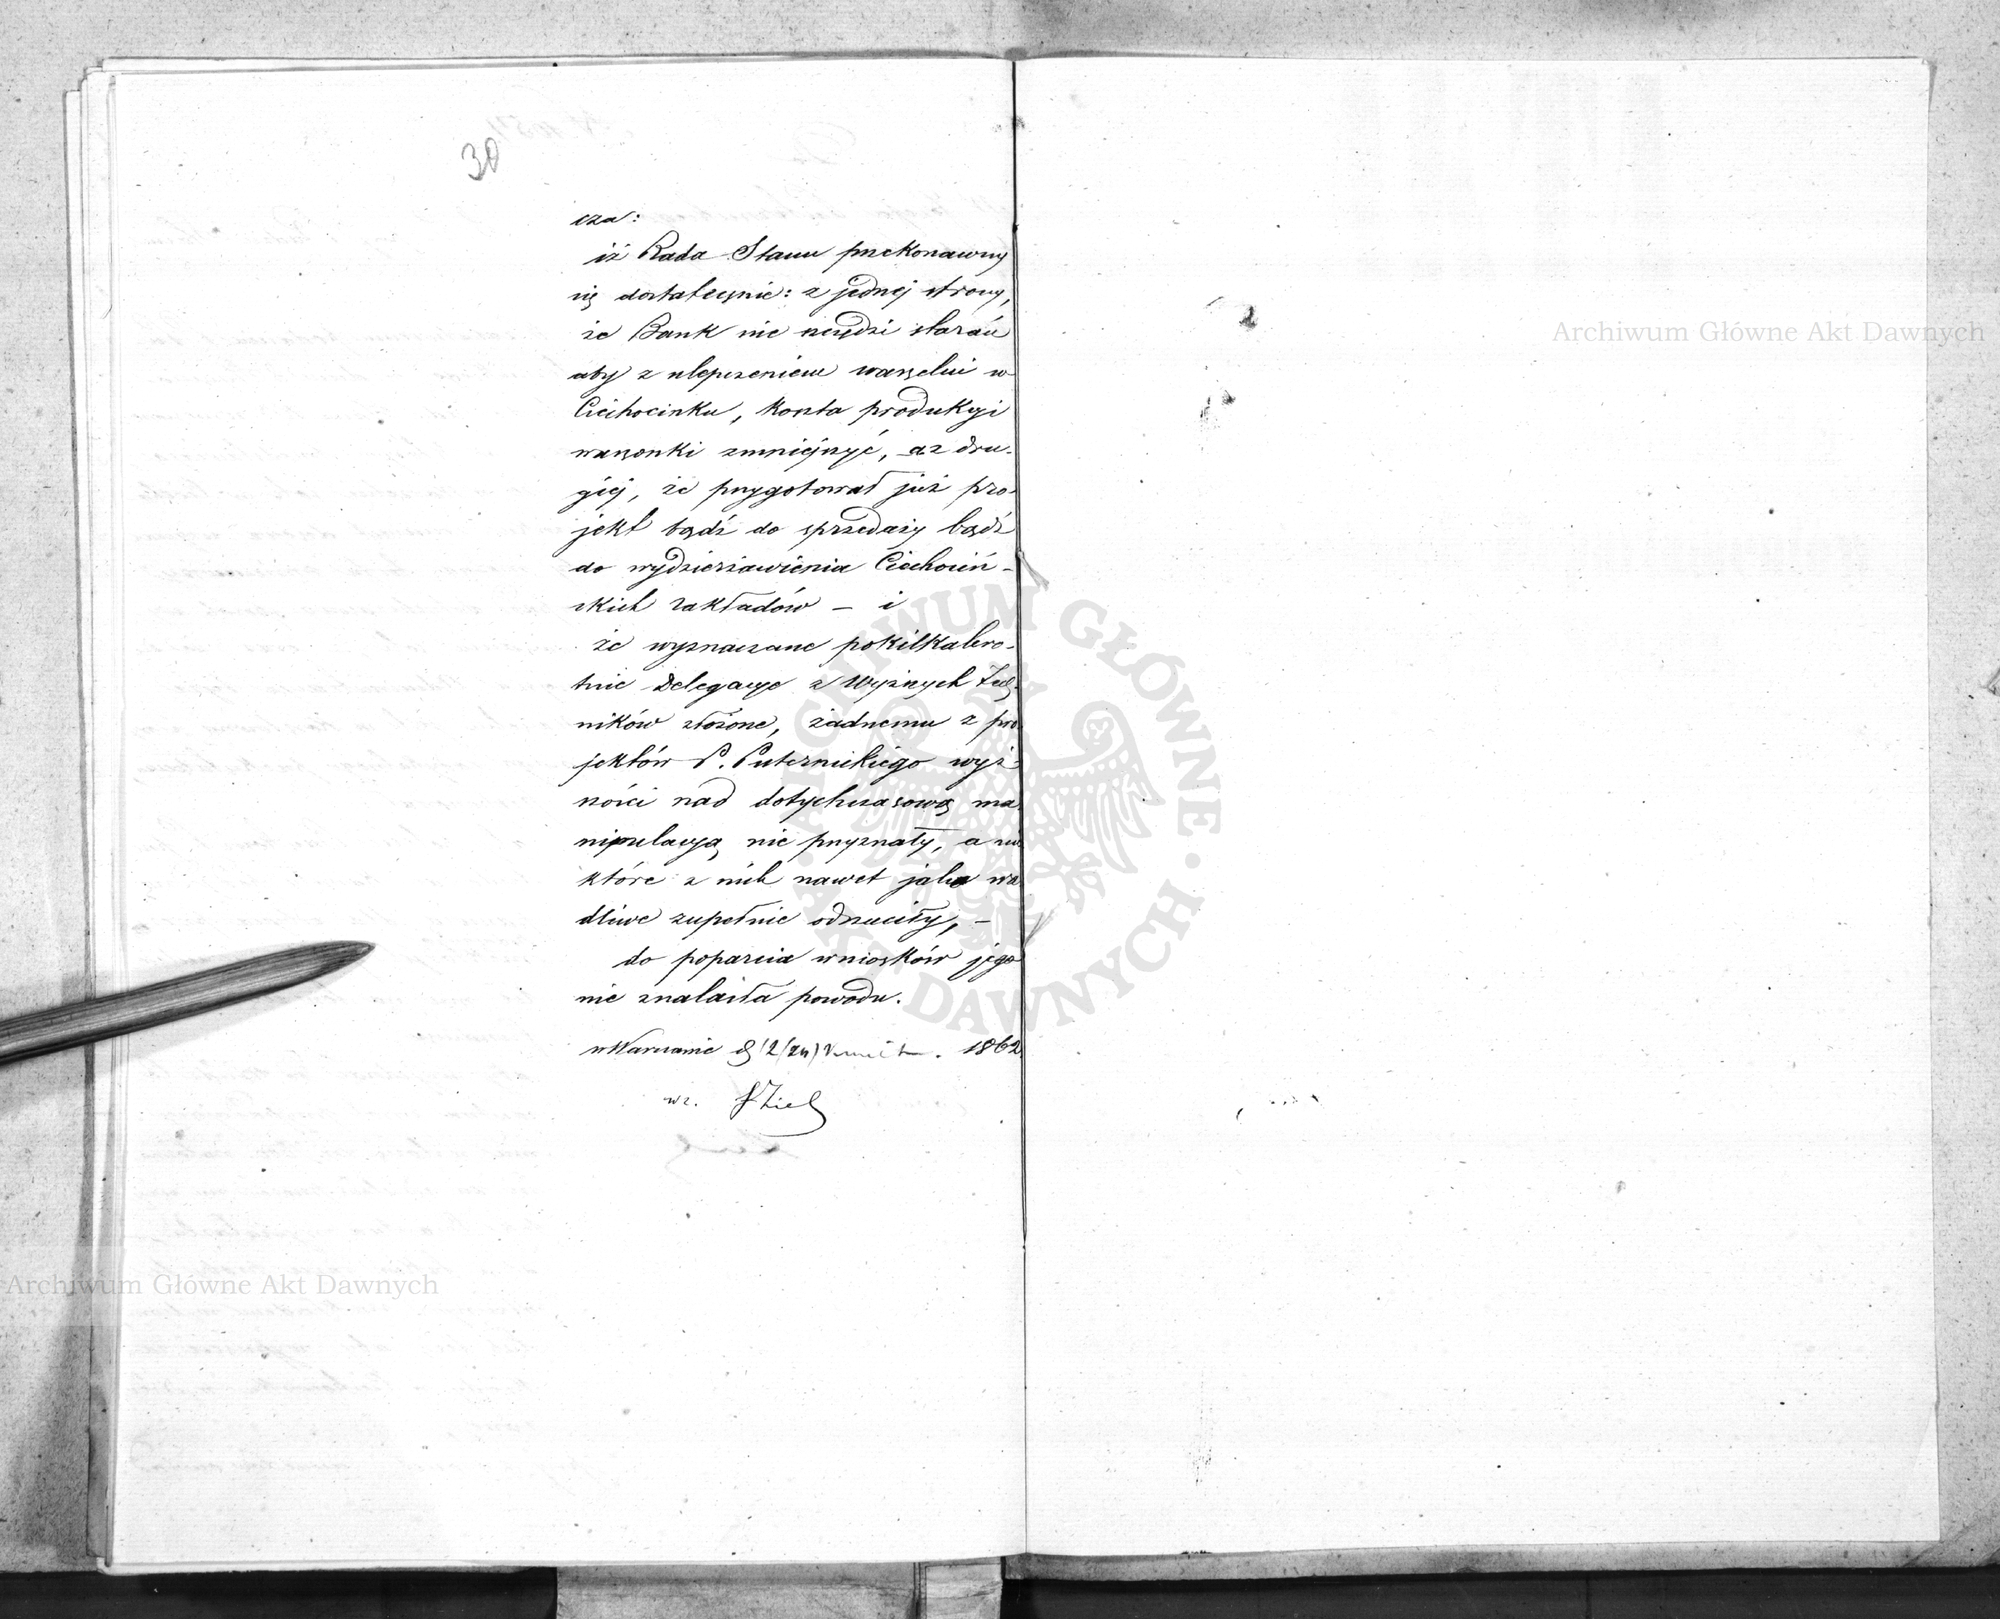 30
cza:
iż Rada Stanu przekonawszy
się dostatecznie: z jednej strony,
że Bank nie szczędzi starań
aby z ulepszeniem warzelni w
Ciechocinku, koszta produkcyi
warzonki zmniejszyć, a z dru-
giej, że przygotował już pro-
jekt bądź do sprzedaży bądź
do wydzierżawienia Ciechociń-
skich zakładów – i
że wyznaczane pokilkakro-
tnie Delegacye z Wyższych
ników złożone, żadnemu z pro
jektów P. Puternickiego wyż-
ności nad dotychczasową ma
nipulacyą nie przyznały, a nie
które z nich nawet jako wa
dliwe zupełnie odrzuciły, –
do poparcia wniosków jego
nie znalazła powodu.
w Warszawie d 12/24 1862
wz.
Archiwum Główne Akt Dawnych
Archiwum Główne Akt Dawnych
ARCHIWUM GŁÓWNE · AKT DAWNYCH ·